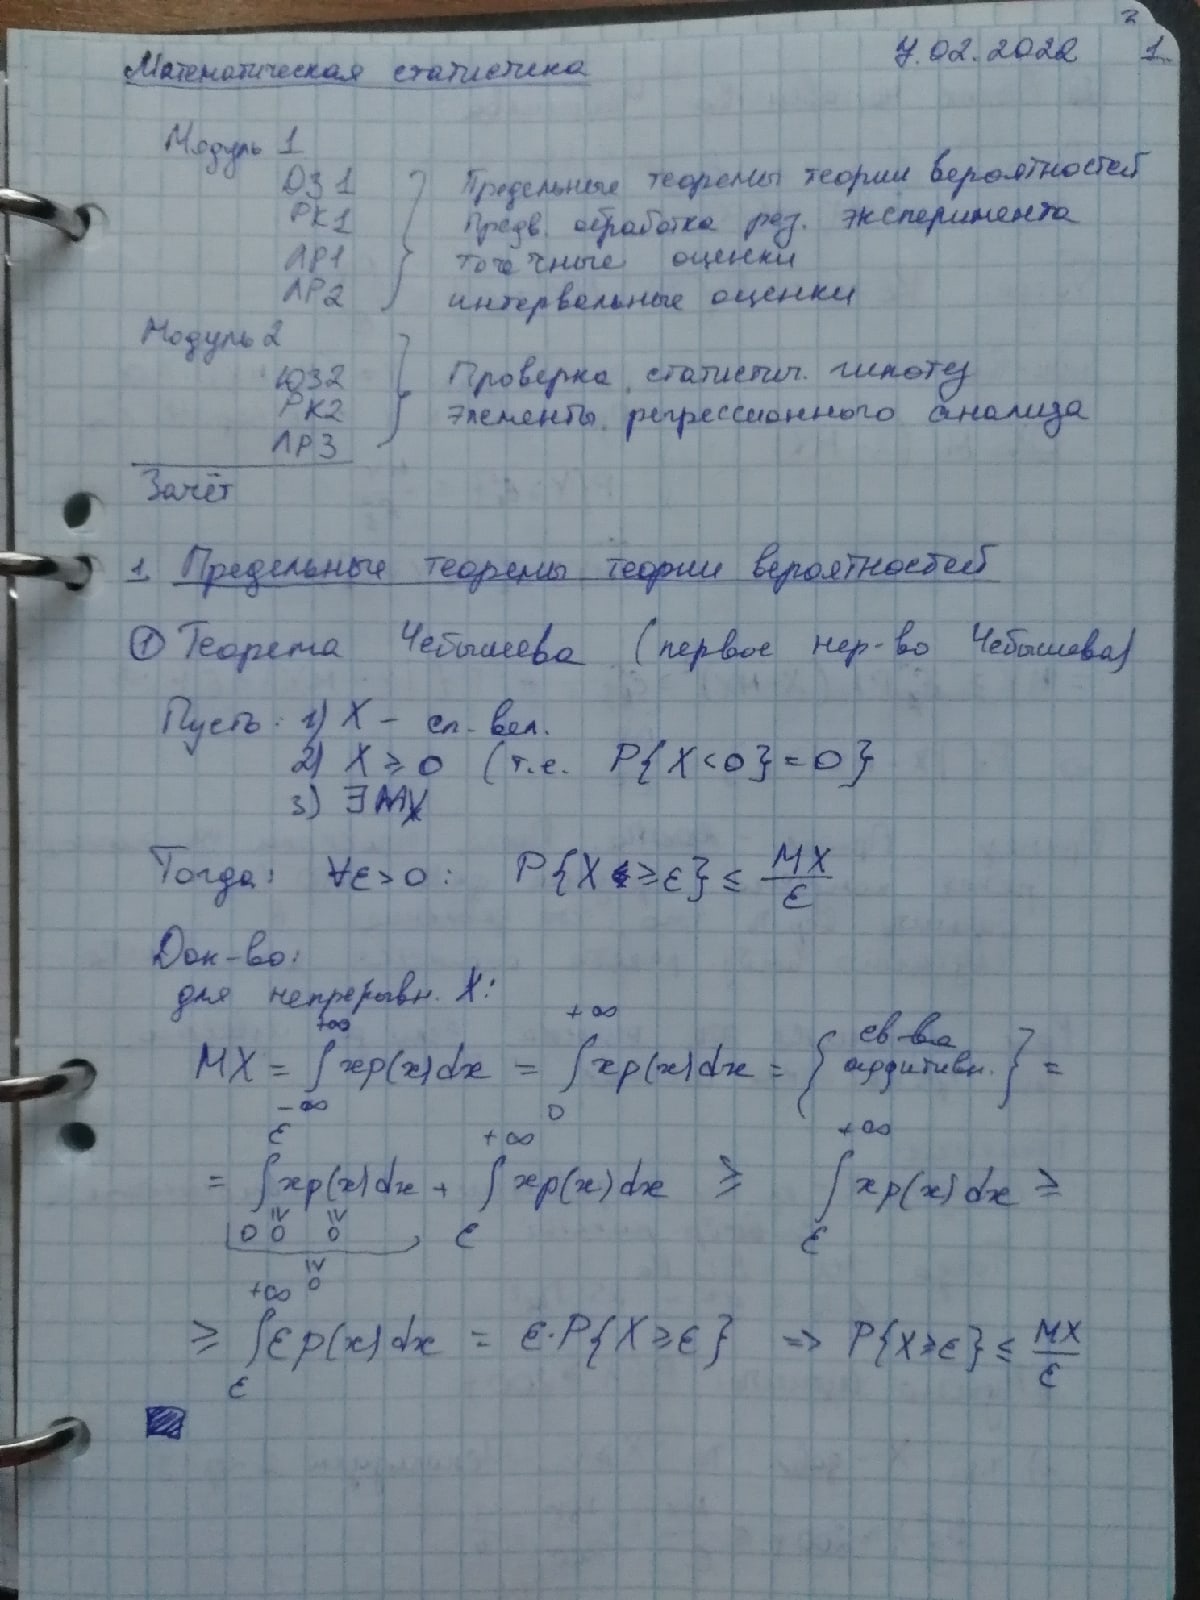 2
Математическая статистика 7.02.2022 1.
Модуль 1
ДЗ 1 } Предельные теоремы теории вероятностей
РК1 Предв. обработка рез. эксперимента
ЛР1 точечные оценки
ЛР2 интервальные оценки
Модуль 2
ДЗ2 } Проверка статистич. гипотез
РК2 Элементы регрессионного анализа
ЛР3
Зачёт
1. Предельные теоремы теории вероятностей
① Теорема Чебышева (первое нер-во Чебышева)
Пусть: 1) X – сл. вел.
2) X ≥ 0 (т.е. P{X<0}=0}
3) ∃ MX
Тогда: ∀ε>0: P{X ≥ε} ≤ MX/ε
Док-во:
для непрерывн. X:
MX = ∫_{-∞}^{+∞} xp(x)dx = ∫_0^{+∞} xp(x)dx = { св-ва аддитивн. } =
= ∫_0^ε xp(x)dx + ∫_ε^{+∞} xp(x)dx ≥ ∫_ε^{+∞} xp(x)dx ≥
≥0 ≥0
≥0
≥ ∫_ε^{+∞} εp(x)dx = ε·P{X≥ε} => P{X≥ε} ≤ MX/ε